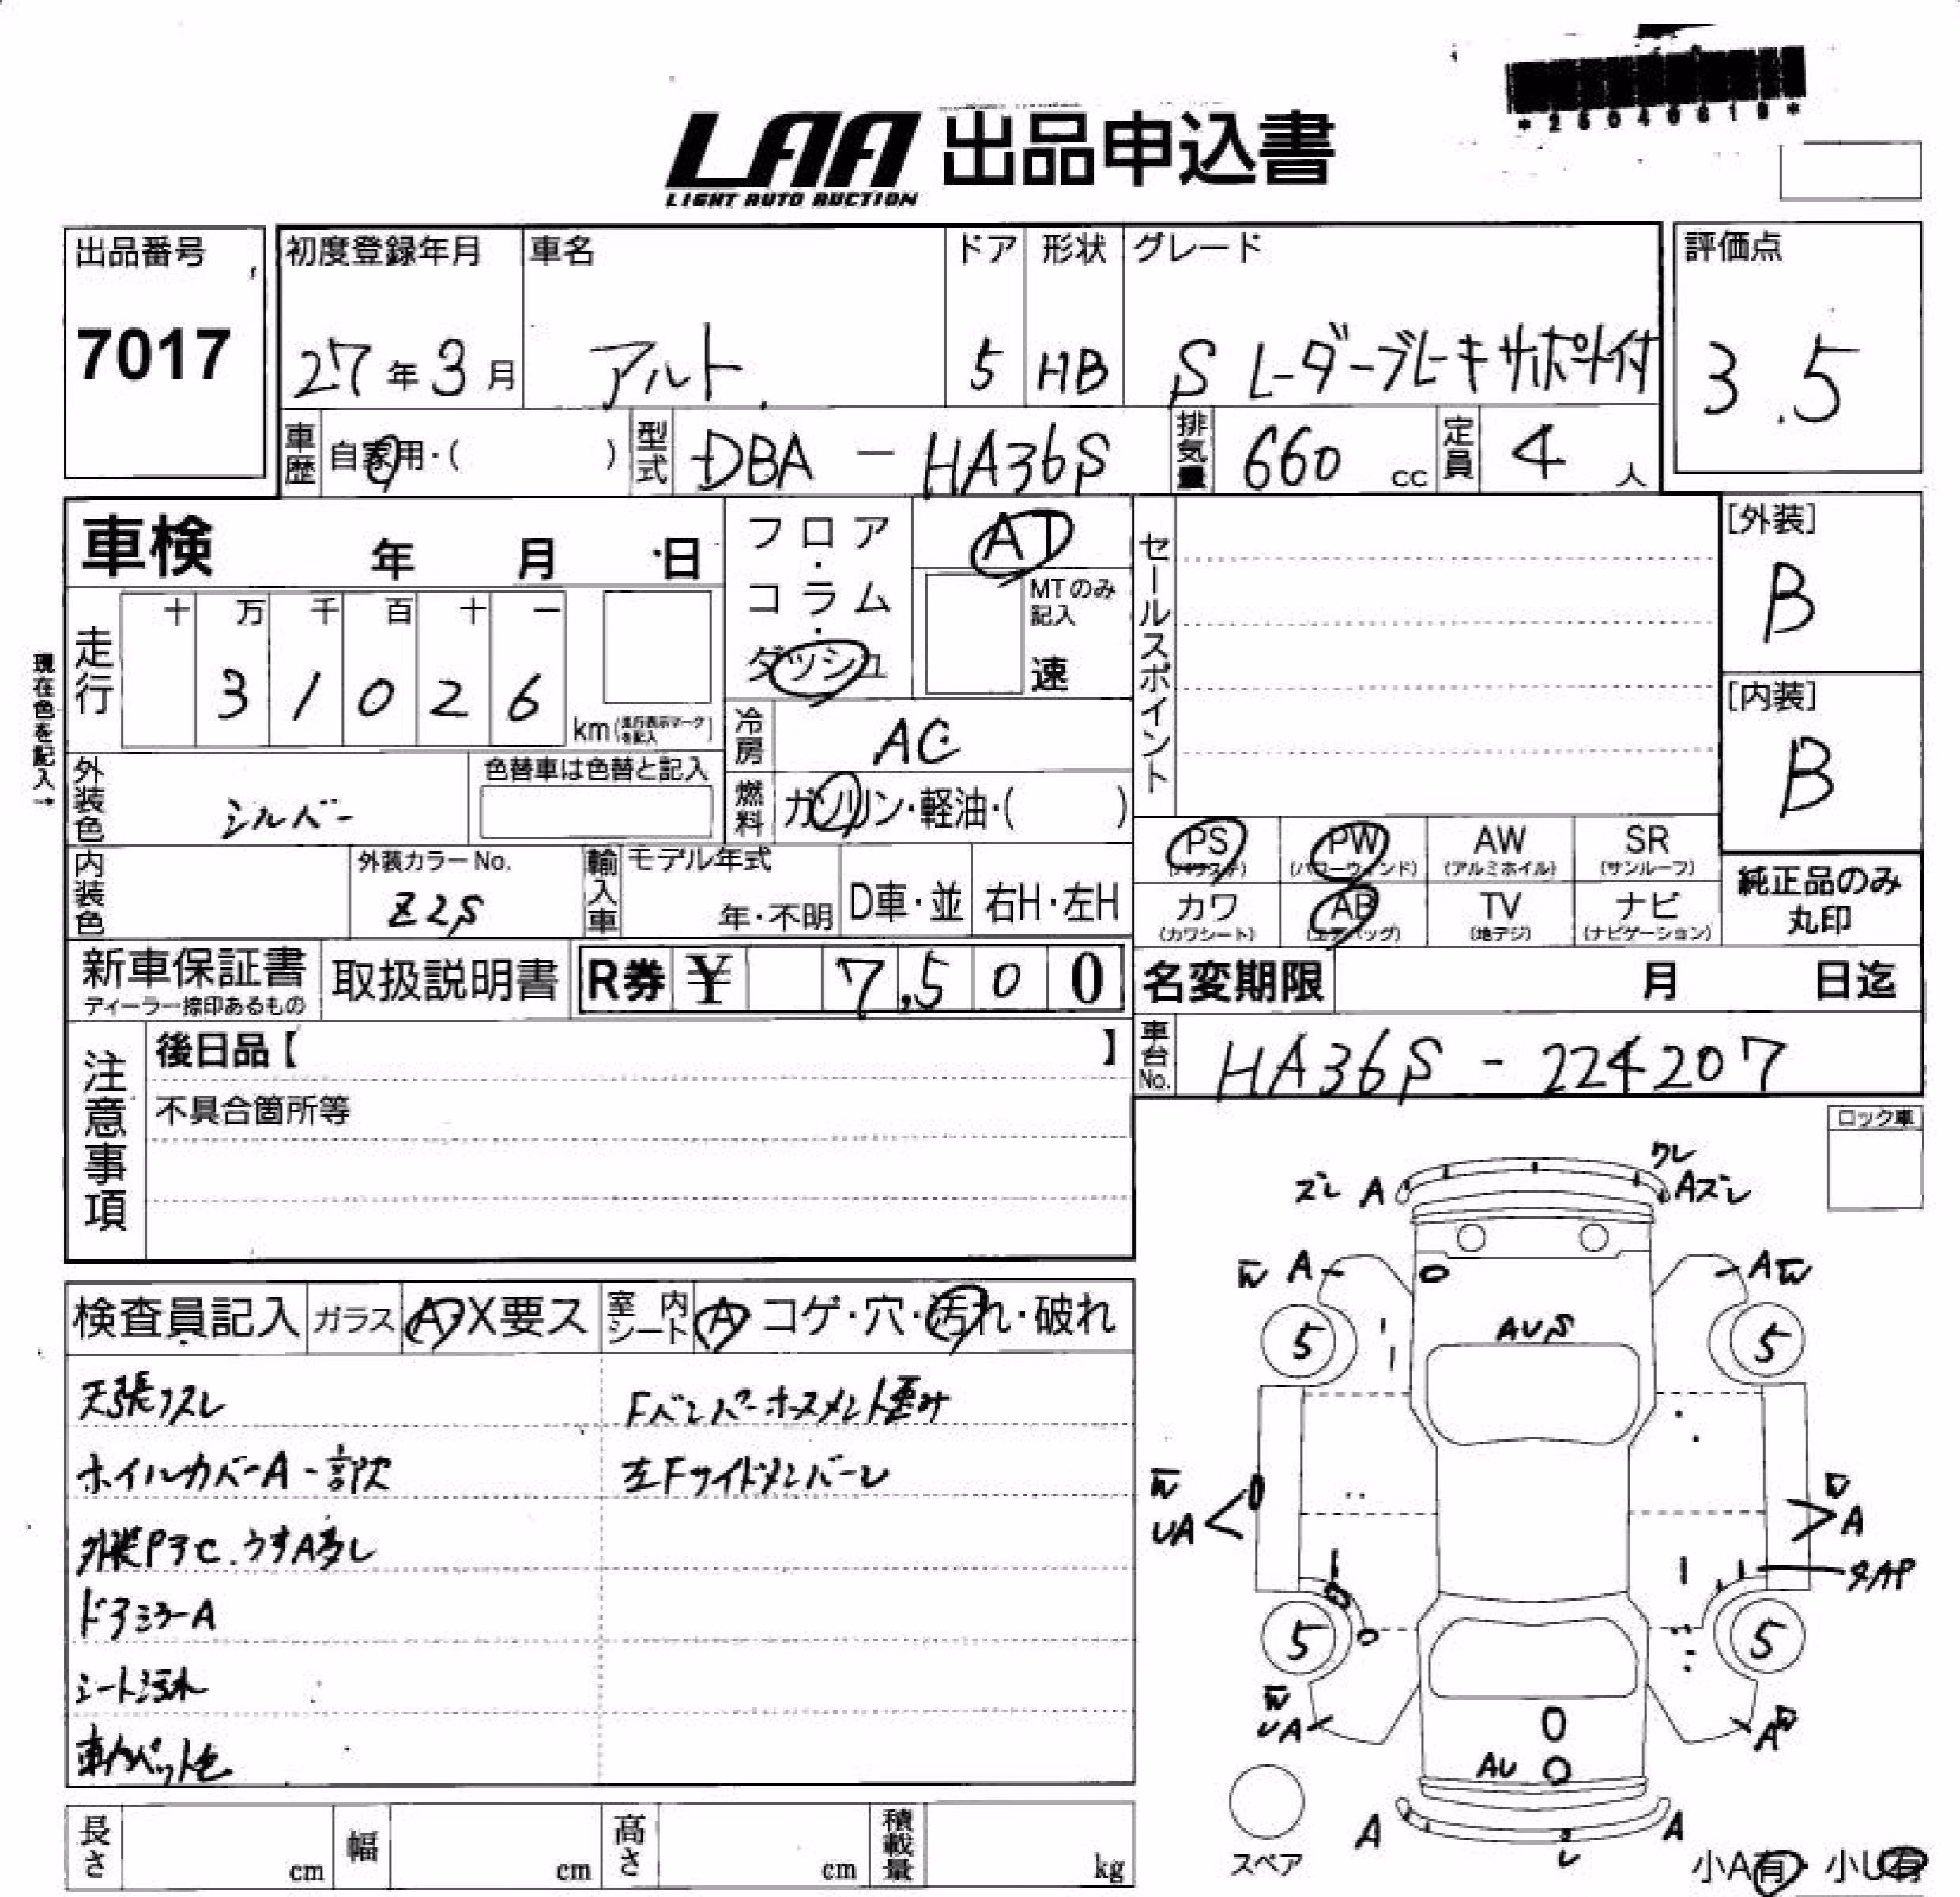 *25040619*
LAA 出品申込書
LIGHT AUTO AUCTION
出品番号 初度登録年月 車名 ドア 形状 グレード 評価点
7017 27年3月 アルト 5 HB S レーダーブレーキサポート付 3.5
車歴 自家用・( ) 型式 DBA - HA36S 排気量 660 cc 定員 4 人
車検 年 月 日 フロア・コラム・ダッシュ AT セールスポイント [外装]
MTのみ記入 速 B
現在色を記入→
走行 十 万 千 百 十 一
3 1 0 2 6 km (走行表示マークを記入) [内装]
冷房 AC B
外装色 シルバー 色替車は色替と記入 燃料 ガソリン・軽油・( )
PS (パワステ) PW (パワーウィンド) AW (アルミホイル) SR (サンルーフ)
内装色 外装カラーNo. Z2S 輸入車 モデル年式 年・不明 D車・並 右H・左H
カワ (カワシート) AB (エアバッグ) TV (地デジ) ナビ (ナビゲーション) 純正品のみ丸印
新車保証書 ディーラー捺印あるもの 取扱説明書 R券 ¥ 7,500 名変期限 月 日迄
注意事項 後日品【 】 車台No. HA36S - 224207
不具合箇所等 ロック車
ワレ
ズレ A Aズレ
A A
検査員記入 ガラス A・X要ス 室内シート A コゲ・穴・汚れ・破れ
5 AUS 5
天張リスレ Fバンパーホースメント歪み
ホイルカバーA一部欠 左Fサイドメンバーレ
UA A
外装PタC.うすA多し
ドアミラーA
5 5
シート汚れ
UA A
AU
A A
レ
スペア
小A有・小U有
長さ cm 幅 cm 高さ cm 積載量 kg